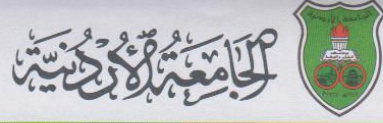 الجَامِعَةُ الأُرْدُنِيَّة